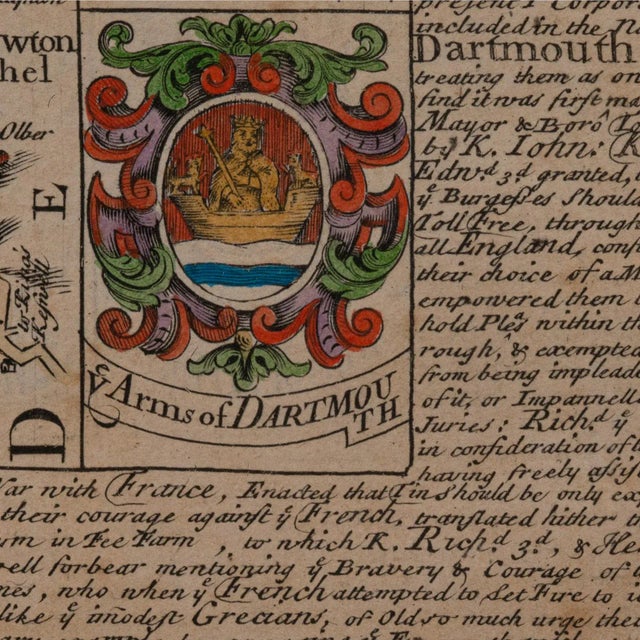 wton
hel
Olber
E
D
yͤ Arms of DARTMOU
TH
present 1 Corpor
included in the Na
Dartmouth
treating them as on
find it was first ma
Mayor & Boroͦ
by K. Iohn: K
Edwᵈ 3ᵈ granted,
yͤ Burgesses Should
Toll Free, through
all England, conf
their choice of a M
empowered them
hold Pleaˢ within th
rough, & exempted
from being impleade
of it, or Impannell
Juries; Richᵈ yͤ
in consideration of
having freely assis
War with France, Enacted that Tin should be only ex
their courage against yͤ French, translated hither
um in Fee Farm, to which K. Richᵈ 3ᵈ, & He
ell forbear mentioning yͤ Bravery & Courage of
nes, who when yͤ French attempted to Set Fire to
like yͤ im̄odest Grecians, of Old so much urge the